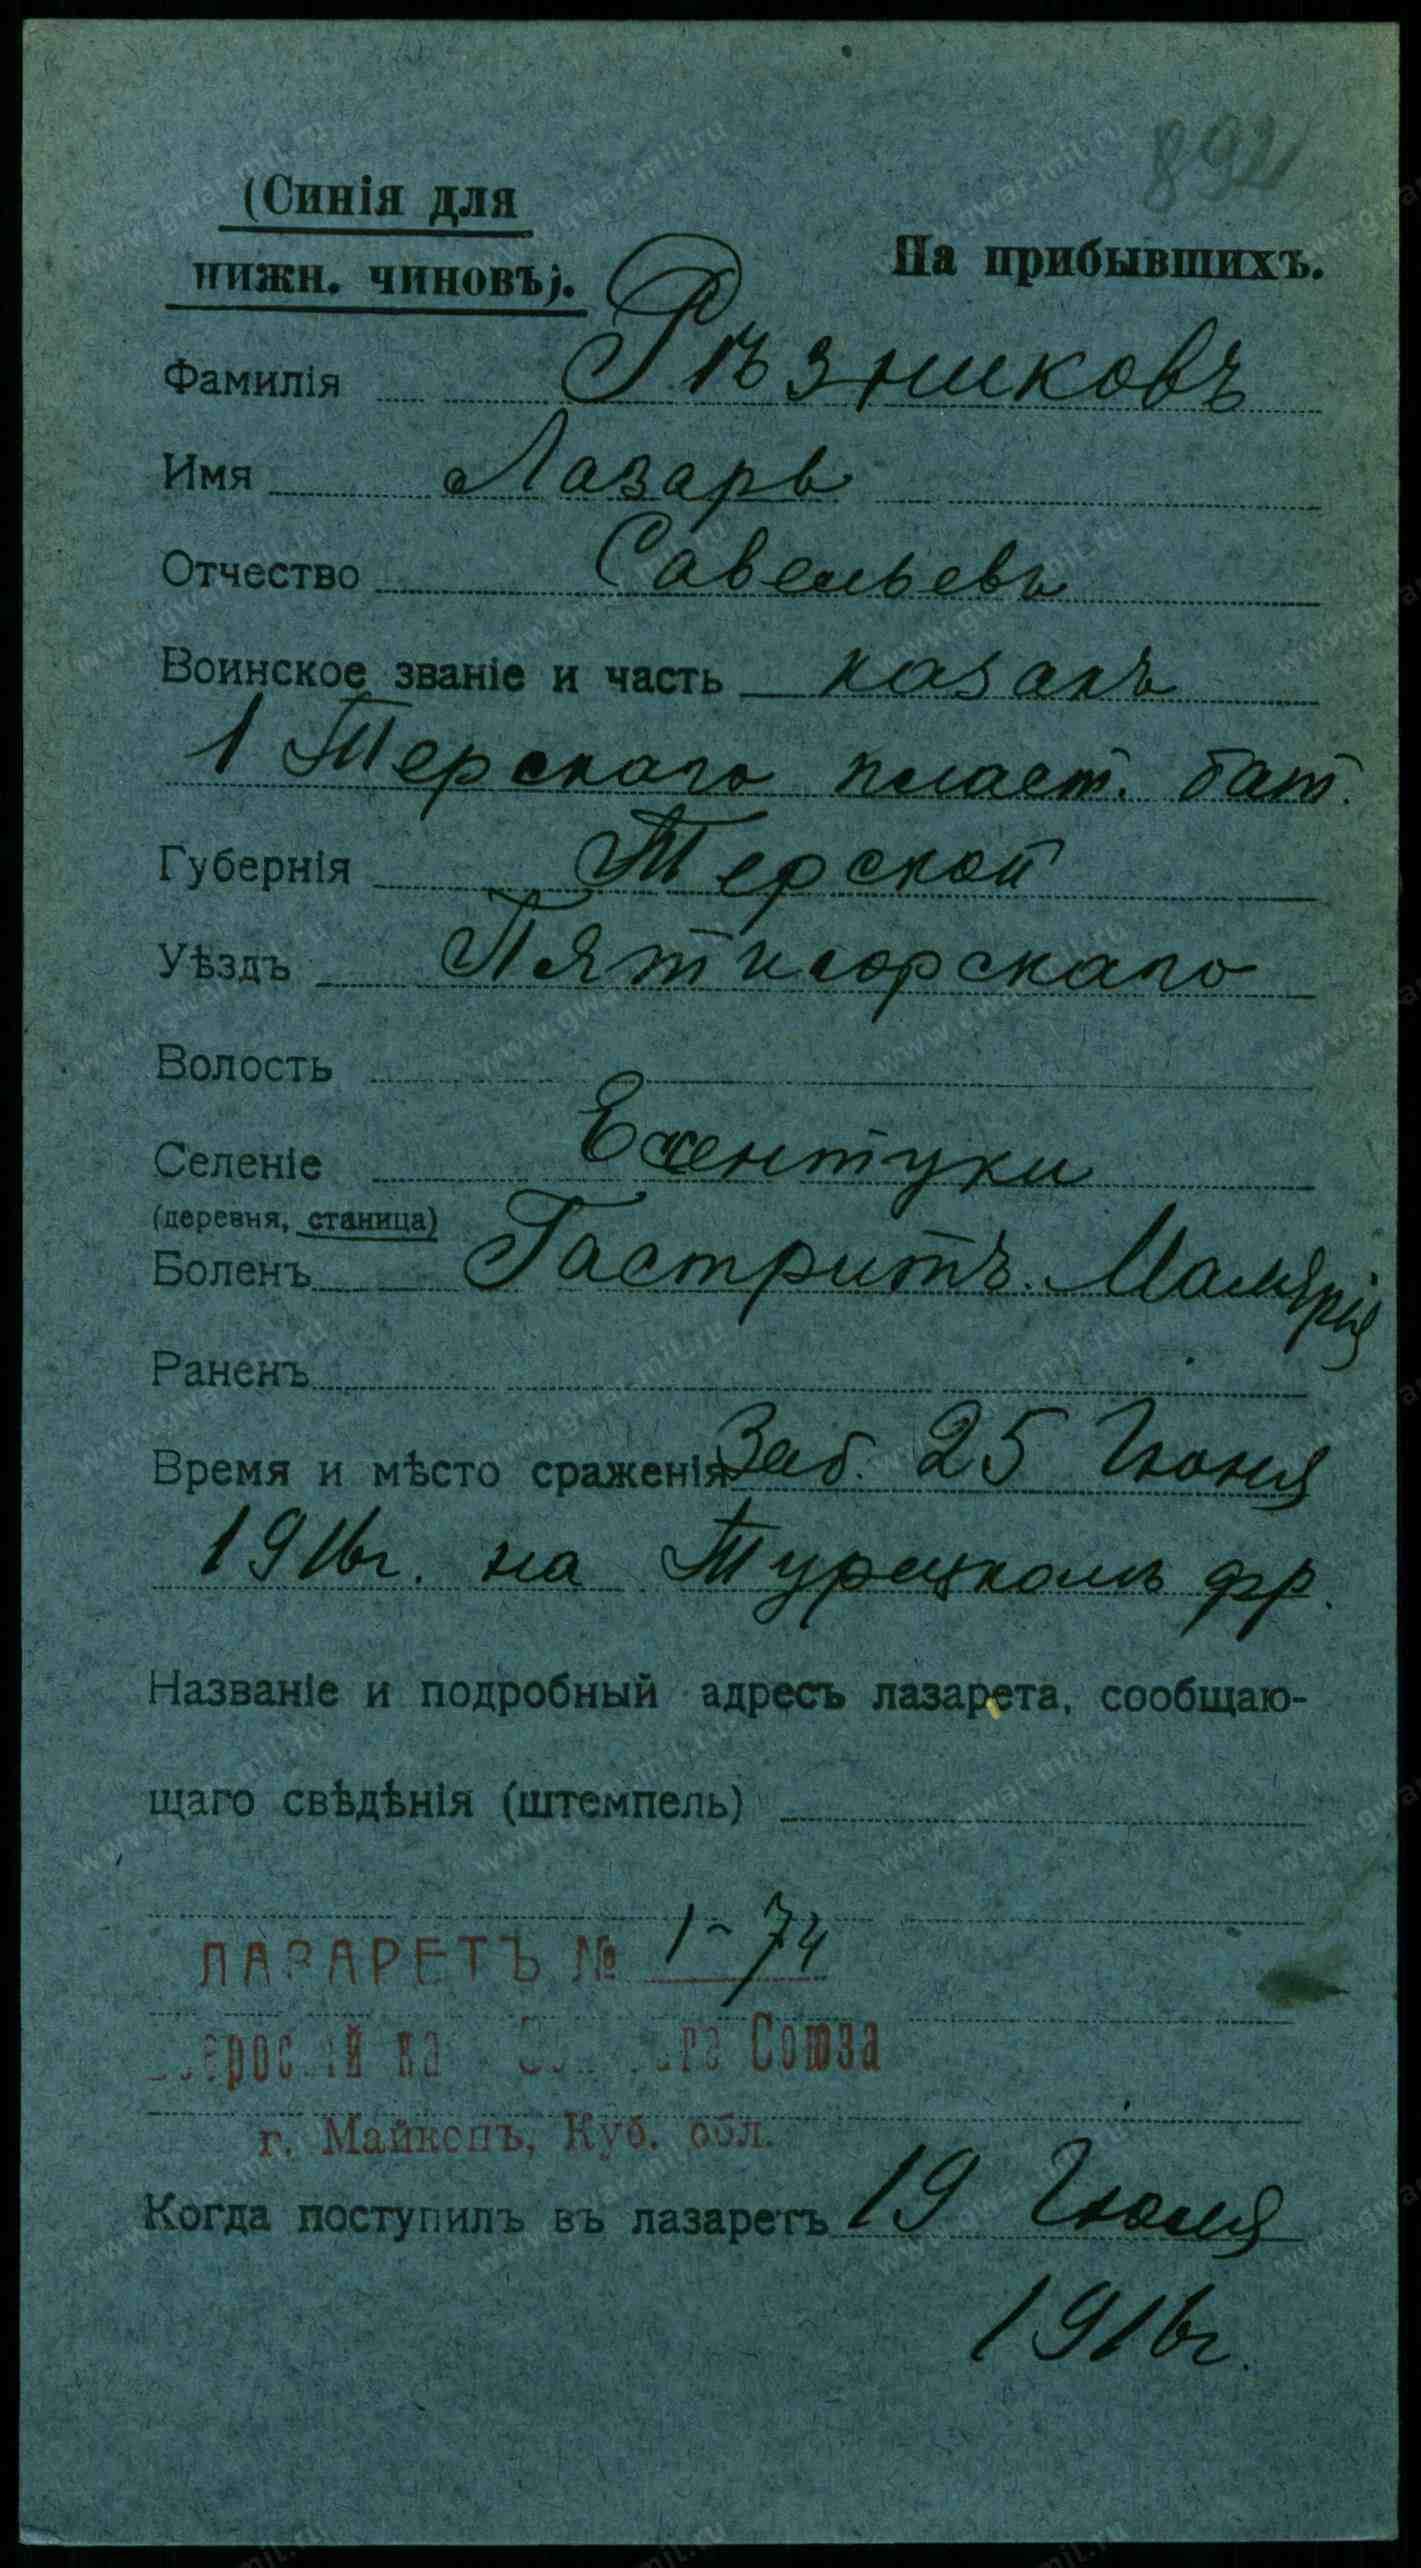 892
(Синія для
нижн. чиновъ).
На прибывшихъ.
Фамилія Рѣзниковъ
Имя Лазарь
Отчество Савельевъ
Воинское званіе и часть казакъ
1 Терскаго пласт. бат.
Губернія Терской
Уѣздъ Пятигорскаго
Волость
Селеніе Есентуки
(деревня, станица)
Боленъ Гастритъ. Малярія
Раненъ
Время и мѣсто сраженія Заб. 25 Іюня
1916г. на Турецкомъ фр.
Названіе и подробный адресъ лазарета, сообщаю-
щаго свѣдѣнія (штемпель)
ЛАЗАРЕТЪ № 1-74
Союза
г. Майкопъ, Куб. обл.
Когда поступилъ въ лазаретъ 19 Іюля
1916г.
www.gwar.mil.ru